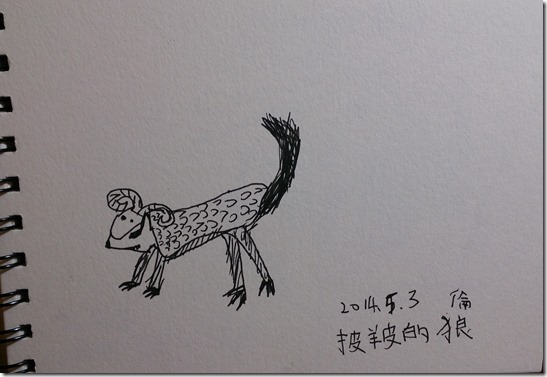 2014.5.3 倫
披羊皮的狼